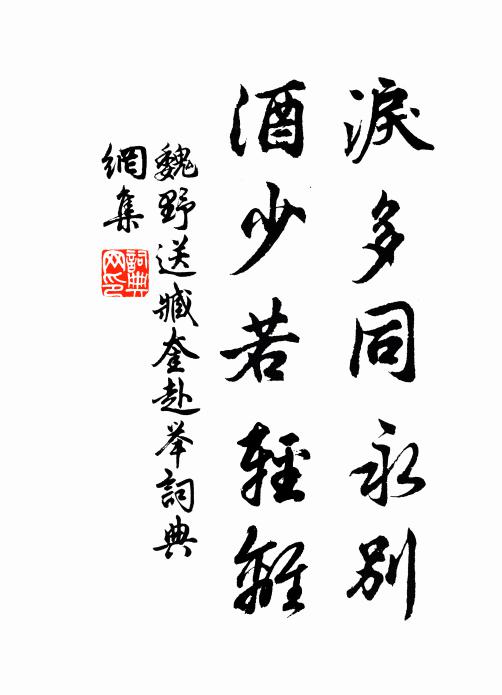 淚多同永別
酒少若輕離
魏野送臧奎赴举詞典
網集
詞典
网印